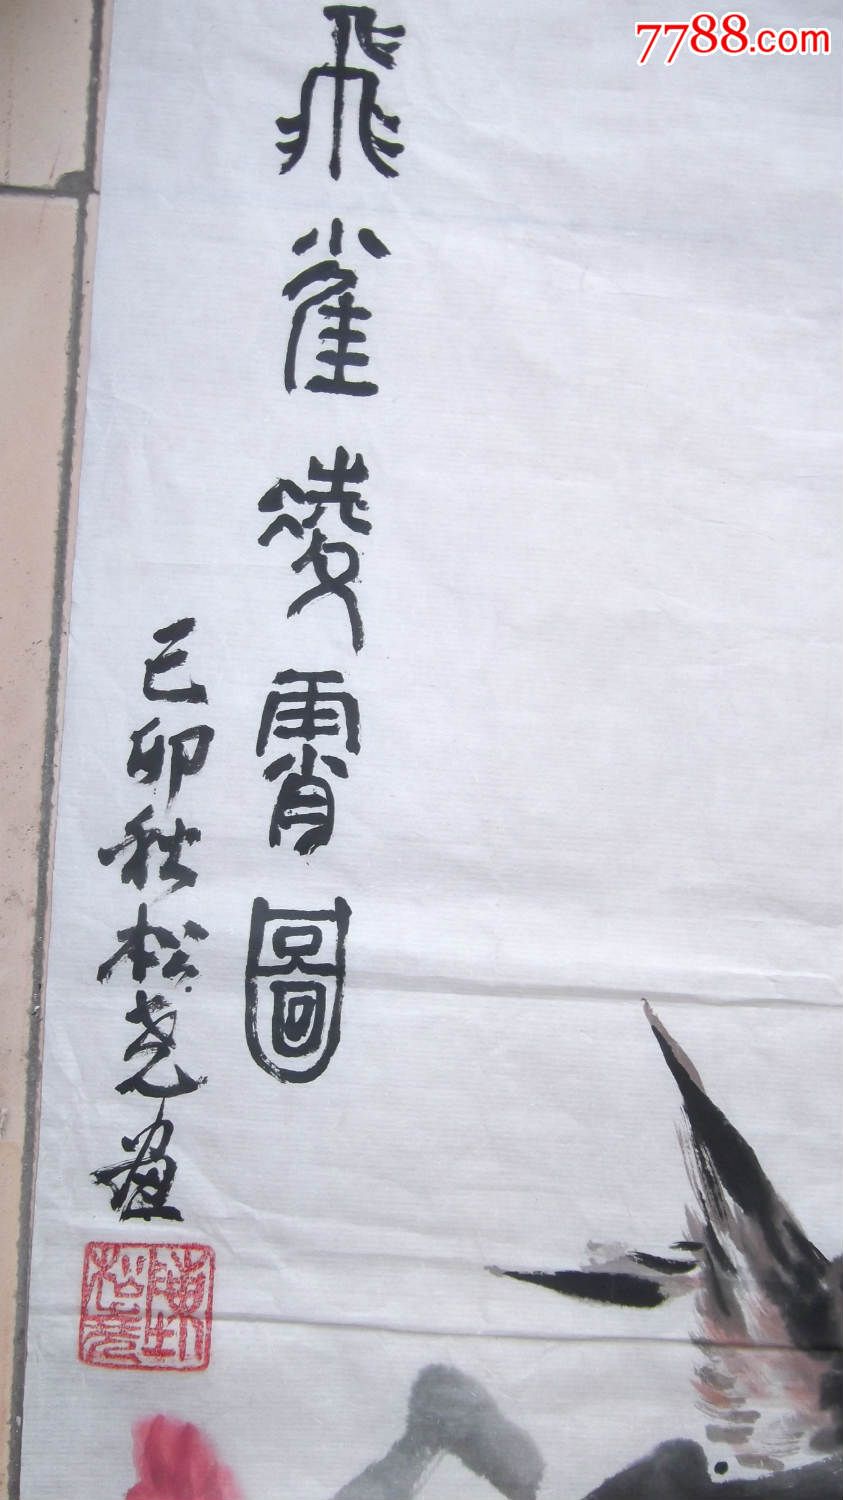 7788.com
飛雀凌霄圖
己卯秋松尧畫